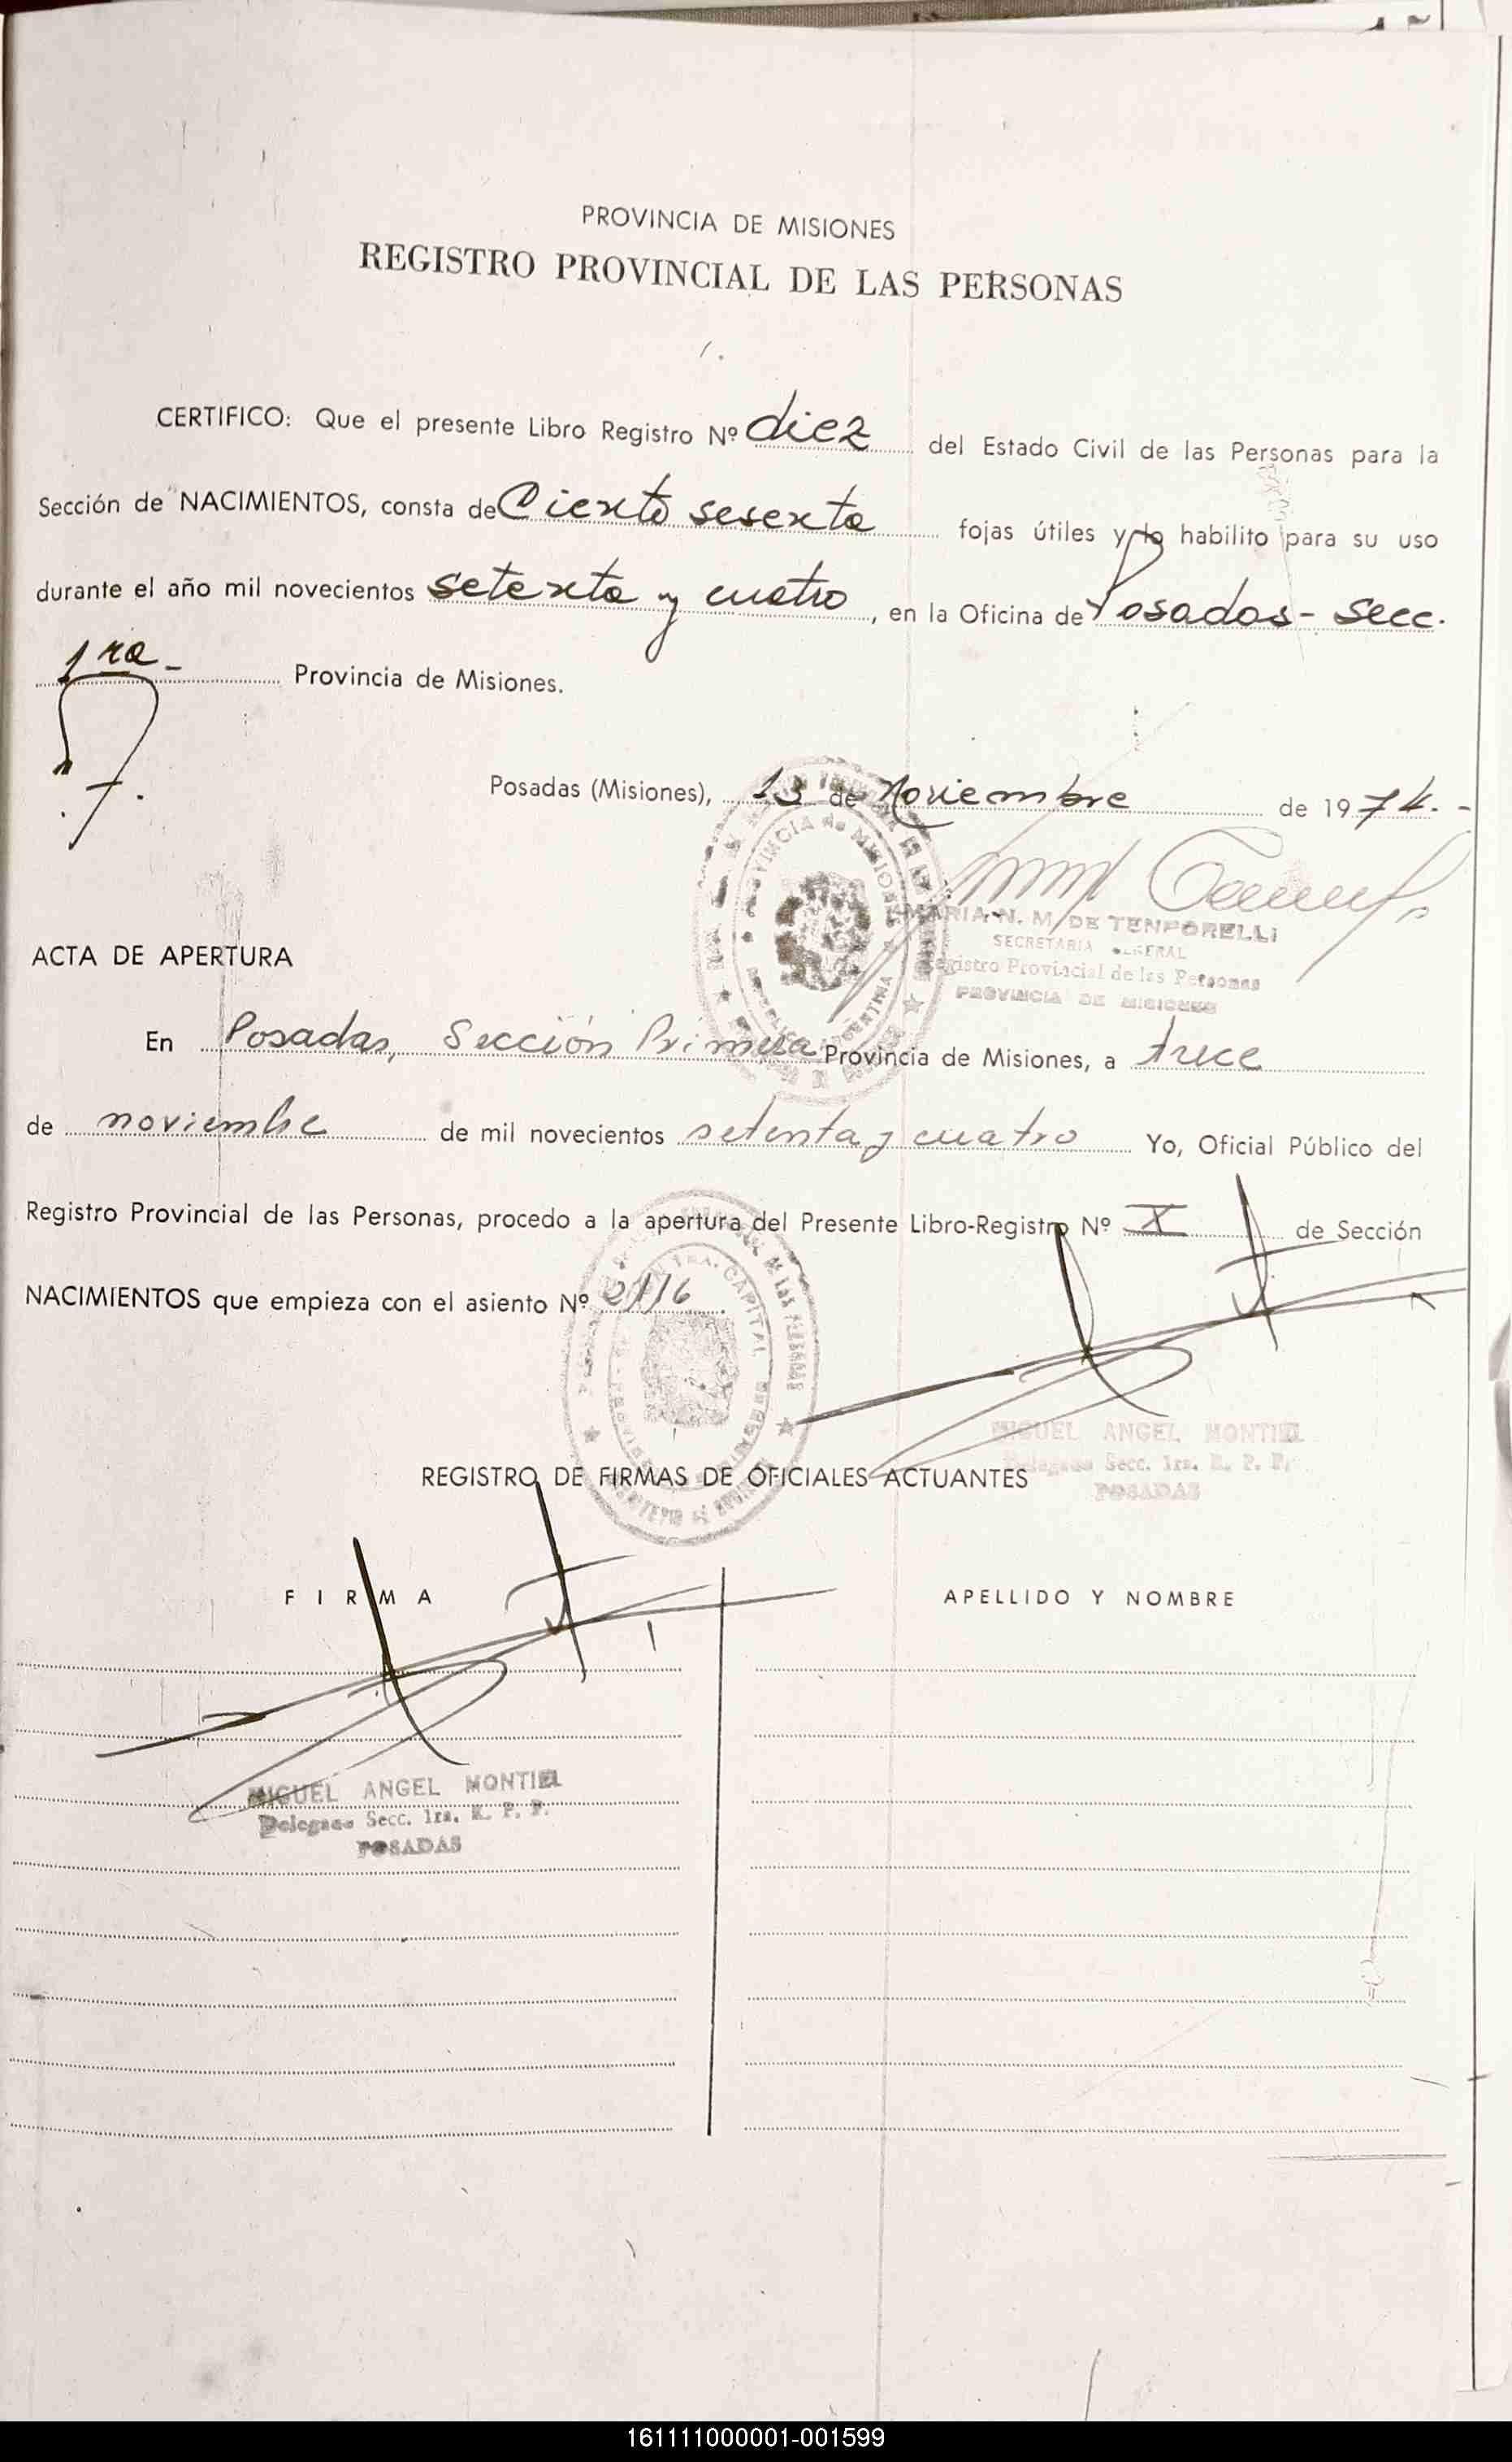 PROVINCIA DE MISIONES
REGISTRO PROVINCIAL DE LAS PERSONAS
CERTIFICO: Que el presente Libro Registro Nº diez del Estado Civil de las Personas para la
Sección de NACIMIENTOS, consta de Ciento sesenta fojas útiles y lo habilito para su uso
durante el año mil novecientos setenta y cuatro, en la Oficina de Posadas - secc.
1ra - Provincia de Misiones.
Posadas (Misiones), 13 de Noviembre de 1974. -
MARIA N. M. DE TENPORELLI
SECRETARIA GENERAL
Registro Provincial de las Personas
PROVINCIA DE MISIONES
ACTA DE APERTURA
En Posadas, Sección Primera Provincia de Misiones, a trece
de noviembre de mil novecientos setenta y cuatro Yo, Oficial Público del
Registro Provincial de las Personas, procedo a la apertura del Presente Libro-Registro Nº X de Sección
NACIMIENTOS que empieza con el asiento Nº
MIGUEL ANGEL MONTIEL
Delegado Secc. 1ra. R. P. P.
POSADAS
REGISTRO DE FIRMAS DE OFICIALES ACTUANTES
FIRMA APELLIDO Y NOMBRE
MIGUEL ANGEL MONTIEL
Delegado Secc. 1ra. R. P. P.
POSADAS
161111000001-001599